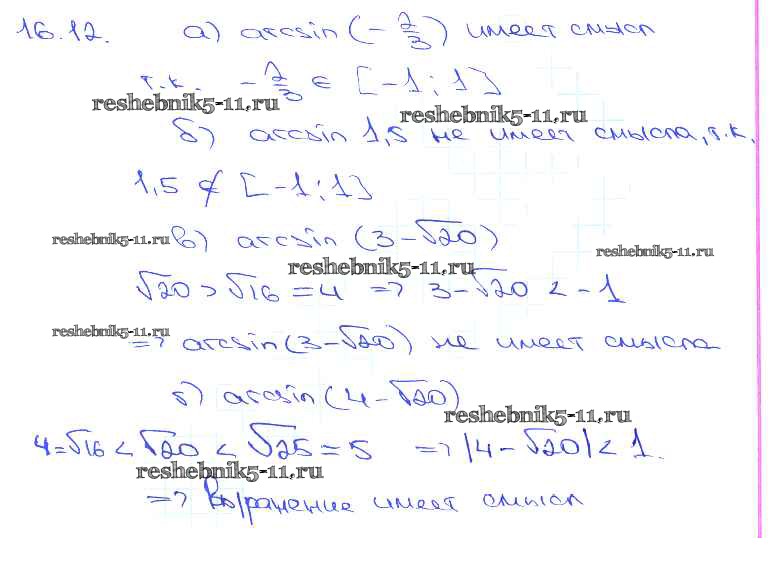 16.12. а) arcsin (-2/3) имеет смысл
т.к. -2/3 ∈ [-1; 1]
reshebnik5-11.ru
reshebnik5-11.ru
б) arcsin 1,5 не имеет смысла, т.к.
1,5 ∉ [-1; 1]
reshebnik5-11.ru в) arcsin (3-√20)
reshebnik5-11.ru
reshebnik5-11.ru
√20 > √16 = 4 => 3-√20 < -1
reshebnik5-11.ru
=> arcsin(3-√20) не имеет смысла
г) arcsin(4-√20)
reshebnik5-11.ru
4=√16 < √20 < √25 = 5 => |4-√20| < 1.
reshebnik5-11.ru
=> Выражение имеет смысл